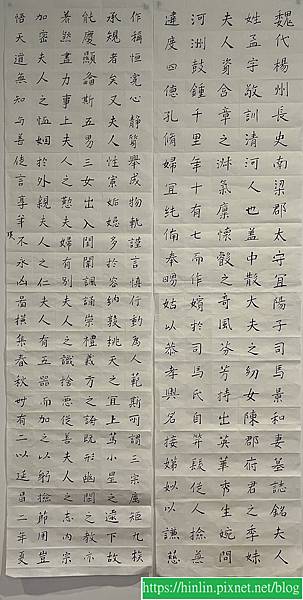 魏代楊州長史南梁郡太守宜陽子司馬景和妻墓誌銘夫人
姓孟字敬訓清河人也蓋中散大夫之幼女陳郡府君之季妹
夫人資含章之淑氣稟懷叡之奇風芬芳特出英華秀生婉問
河洲鼓鍾千里年十有七而作嬪於司馬氏自笄髮從人撿無
違度四德孔脩婦宜純備奉舅姑以恭孝興名接娣姒以謙慈
作稱恒寬心靜質舉成物軌謹言慎行動為人範斯所謂三宗厲矩九族
承規者矣又夫人性寡妬忌多於容納敦桃夭之宜上篤小星之逮下故
能慶顯螽斯五男三女出入閨闈諷誦崇禮義方之誨既形幽閨之教亦
著然盡力事上夫人之勤夫婦有別夫人之識捨惡從善夫人之志內宗
加密夫人之恤姻於外親夫人之仁夫人有五器而加之以躬撿節用豈
悟天道無知与善徒言享年不永凶圖橫集春秋卌有二以延昌二年夏
https://hinlin.pixnet.net/blog